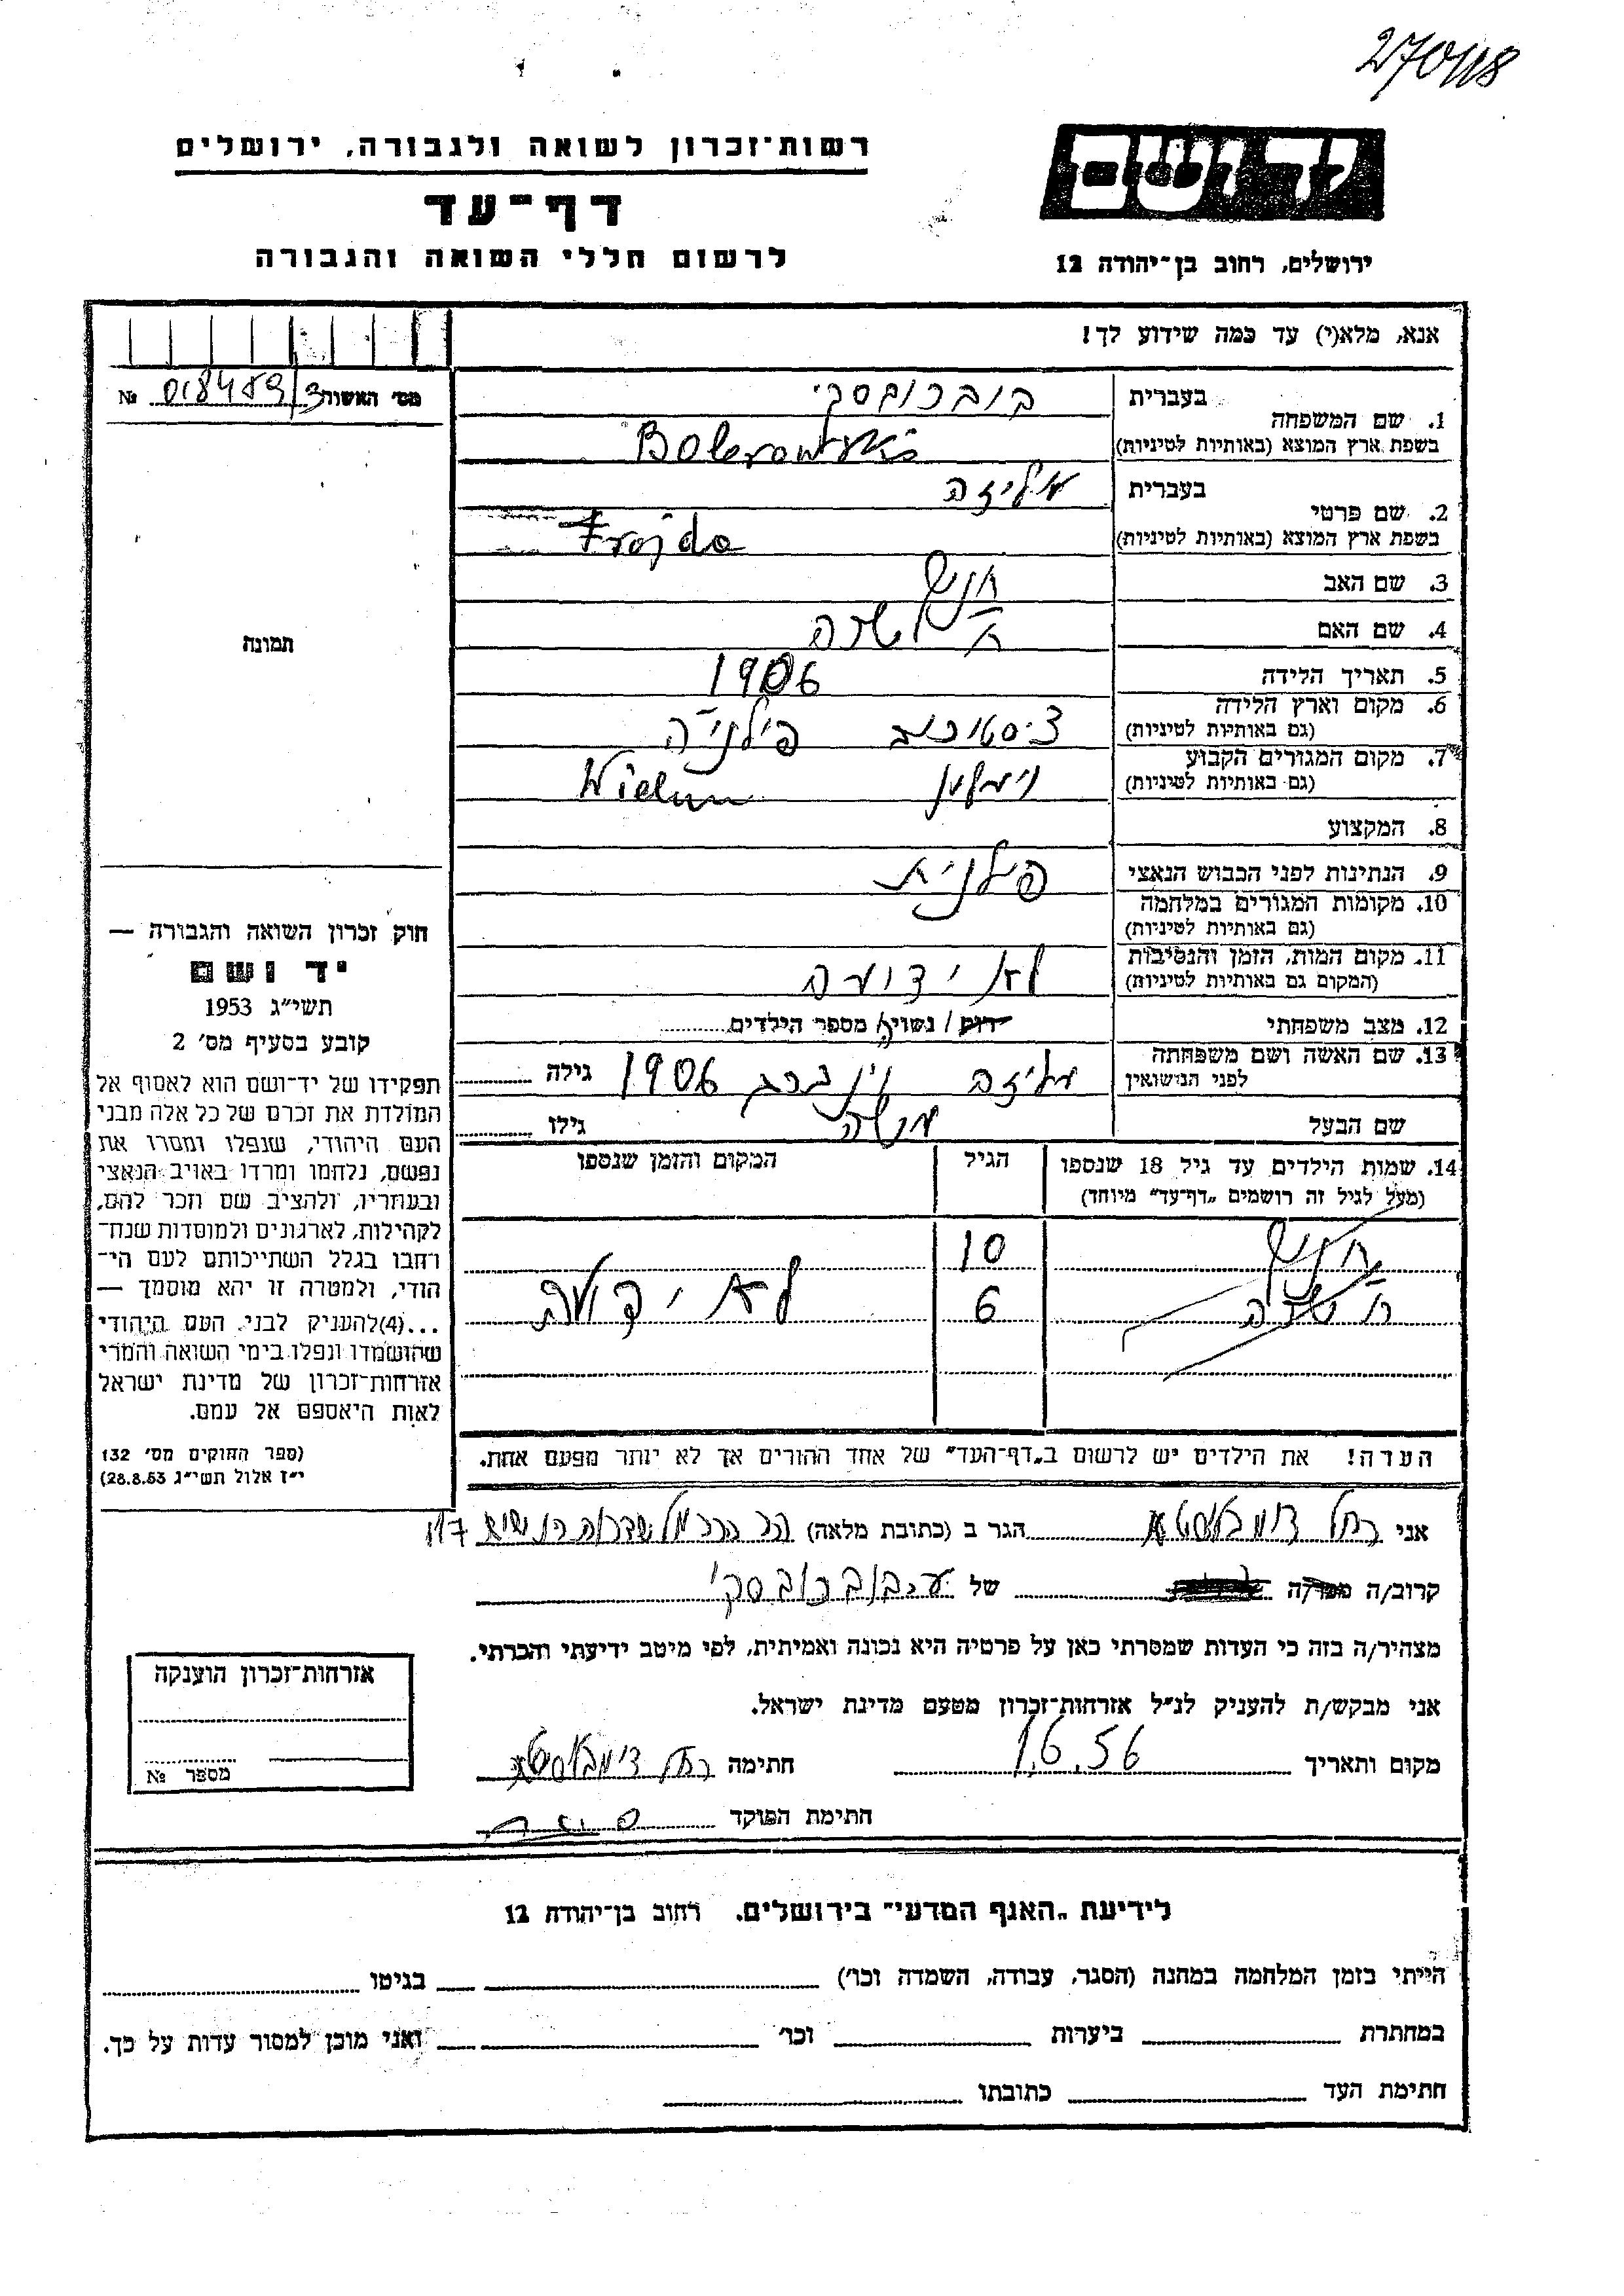 270118
רשות־זכרון לשואה ולגבורה, ירושלים
דף־עד
לרשום חללי השואה והגבורה
ידושם
ירושלים, רחוב בן־יהודה 12
אנא, מלא(י) עד כמה שידוע לך!
מס׳ האשור 018489/3 №
תמונה
1. שם המשפחה
בעברית בוברובסקי
בשפת ארץ המוצא (באותיות לטיניות)
2. שם פרטי
בעברית עליזה
בשפת ארץ המוצא (באותיות לטיניות) Frajda
3. שם האב
4. שם האם
5. תאריך הלידה 1906
6. מקום וארץ הלידה
(גם באותיות לטיניות) צ׳סטוכוב פולניה
7. מקום המגורים הקבוע
(גם באותיות לטיניות) וילון Wielun
8. המקצוע
9. הנתינות לפני הכבוש הנאצי פולנית
10. מקומות המגורים במלחמה
(גם באותיות לטיניות)
11. מקום המות, הזמן והנסיבות
(המקום גם באותיות לטיניות) לא ידועה
12. מצב משפחתי רוק / נשוי/אה מספר הילדים
13. שם האשה ושם משפחתה
לפני הנישואין עליזה וינברג 1906 גילה
שם הבעל משה גילו
14. שמות הילדים עד גיל 18 שנספו
(מעל לגיל זה רושמים „דף־עד” מיוחד)
הגיל
המקום והזמן שנספו
10
6 לא ידועה
הערה! את הילדים יש לרשום ב„דף־העד” של אחד ההורים אך לא יותר מפעם אחת.
חוק זכרון השואה והגבורה —
יד ושם
תשי״ג 1953
קובע בסעיף מס׳ 2
תפקידו של יד־ושם הוא לאסוף אל
המולדת את זכרם של כל אלה מבני
העם היהודי, שנפלו ומסרו את
נפשם, נלחמו ומרדו באויב הנאצי
ובעוזריו, ולהציב שם וזכר להם,
לקהילות, לארגונים ולמוסדות שנח־
רחבו בגלל השתייכותם לעם הי־
הודי, ולמטרה זו יהא מוסמך —
...(4) להעניק לבני העם היהודי
שהושמדו ונפלו בימי השואה והמרי
אזרחות־זכרון של מדינת ישראל
לאות היאספם אל עמם.
(ספר החוקים מס׳ 132
י״ז אלול תשי״ג 28.8.53)
אני רחל הגר ב (כתובת מלאה) הר הכרמל שדרות הנשיא
קרוב/ה מכר/ה של ע. בוברובסקי
מצהיר/ה בזה כי העדות שמסרתי כאן על פרטיה היא נכונה ואמיתית, לפי מיטב ידיעתי והכרתי.
אני מבקש/ת להעניק לנ״ל אזרחות־זכרון מטעם מדינת ישראל.
מקום ותאריך 1.6.56 חתימה רחל
חתימת הפוקד
אזרחות־זכרון הוענקה
מספר №
לידיעת „האגף המדעי” בירושלים. רחוב בן־יהודה 12
הייתי בזמן המלחמה במחנה (הסגר, עבודה, השמדה וכו׳) בגיטו
במחתרת ביערות וכו׳ ואני מוכן למסור עדות על כך.
חתימת העד כתובתו